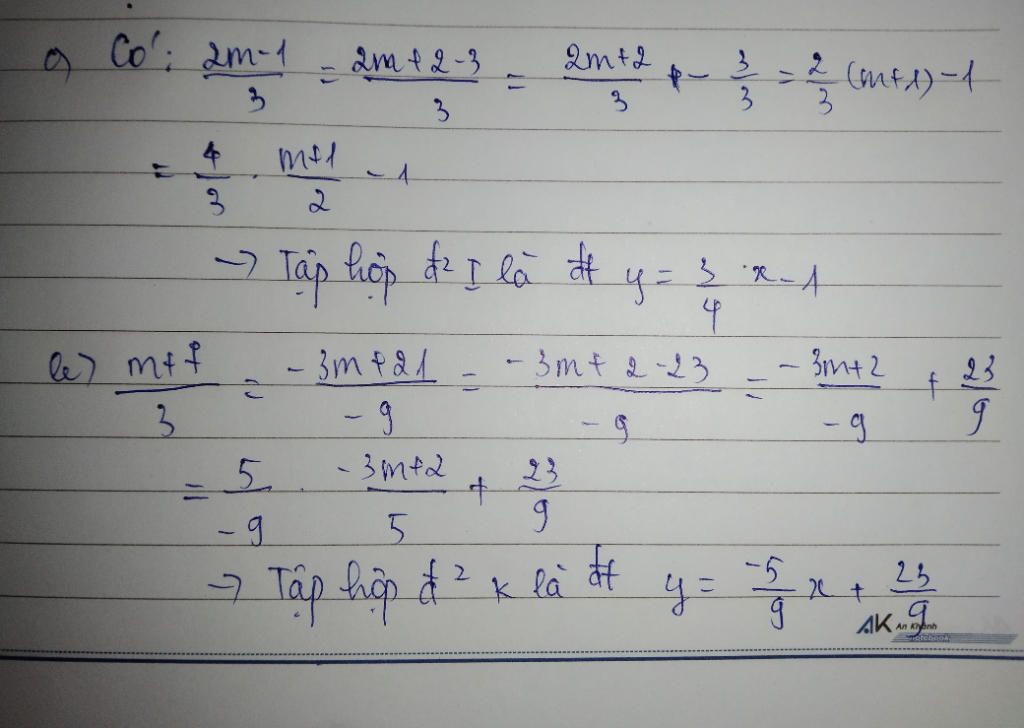 a) Có: \frac{2m-1}{3} = \frac{2m+2-3}{3} = \frac{2m+2}{3} - \frac{3}{3} = \frac{2}{3}(m+1)-1
= \frac{4}{3} \cdot \frac{m+1}{2} - 1
→ Tập hợp đ² I là đt y = \frac{3}{4} \cdot x - 1
b) \frac{m+7}{3} = \frac{-3m+21}{-9} = \frac{-3m+2-23}{-9} = \frac{-3m+2}{-9} + \frac{23}{9}
= \frac{5}{-9} \cdot \frac{-3m+2}{5} + \frac{23}{9}
→ Tập hợp đ² K là đt y = \frac{-5}{9}x + \frac{23}{9}
AK An Khánh
Notebook